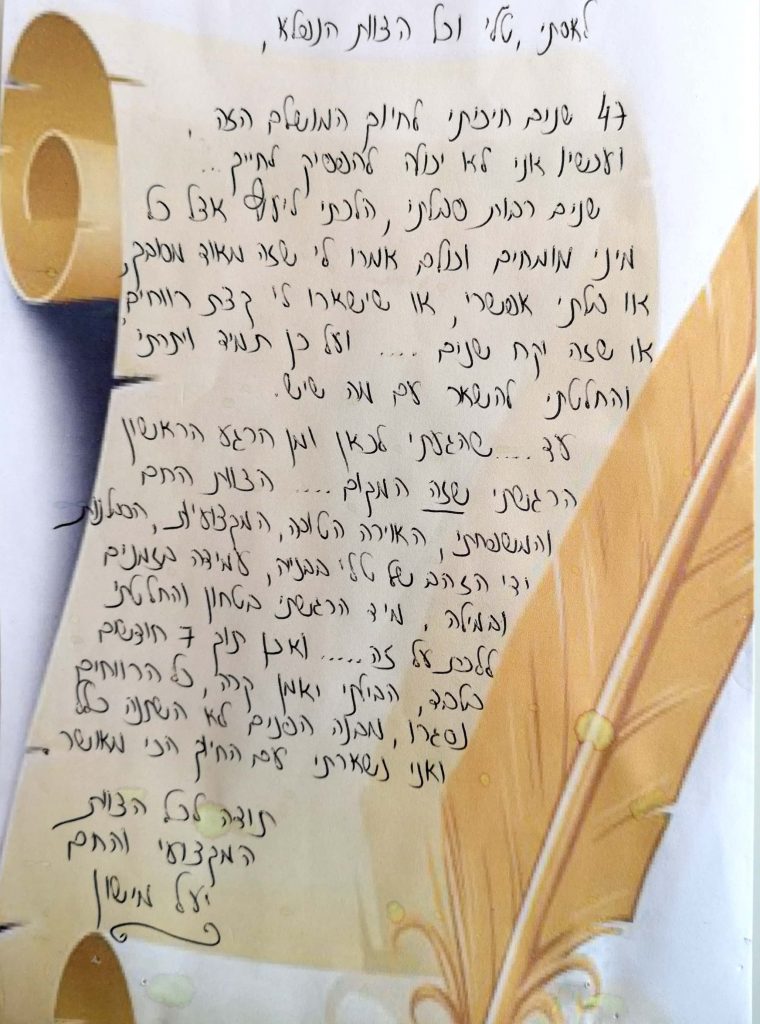 לאסתי, טלי וכל הצוות הנפלא,
47 שנים חיכיתי לחיוך המושלם הזה,
ועכשיו אני לא יכולה להפסיק לחייך...
שנים רבות סבלתי, הלכתי ליעוץ אצל כל
מיני מומחים וכולם אמרו לי שזה מאוד מסובך,
או בלתי אפשרי, או שישארו לי קצת רווחים,
או שזה יקח שנים .... ועל כן תמיד ויתרתי
והחלטתי להשאר עם מה שיש.
עד .... שהגעתי לכאן ומן הרגע הראשון
הרגשתי שזה המקום .... הצוות החם
והמשפחתי, האוירה הטובה, המקצועיות, הסבלנות
ידי הזהב של טלי בבנייה, עמידה בזמנים
ובמילה, מיד הרגשתי בטחון והחלטתי
ללכת על זה..... ואכן תוך 7 חודשים
בלבד, הבילתי יאמן קרה, כל הרווחים
נסגרו, מבנה הפנים לא השתנה כלל
ואני נשארתי עם החיוך הכי מאושר.
תודה לכל הצוות
המקצועי והחם
יעל מישון